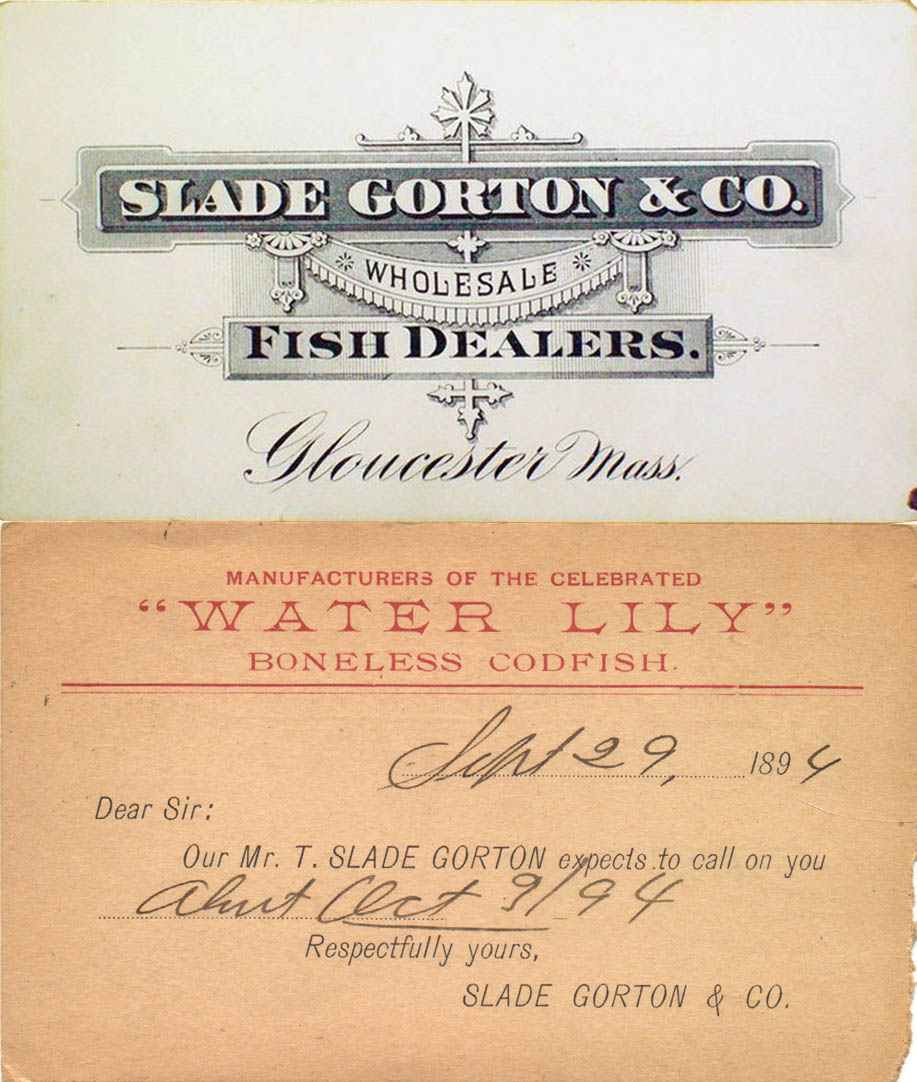 SLADE GORTON & CO.
WHOLESALE
FISH DEALERS.
Gloucester Mass.
MANUFACTURERS OF THE CELEBRATED
"WATER LILY"
BONELESS CODFISH.
Sept 29, 1894
Dear Sir:
Our Mr. T. SLADE GORTON expects to call on you
About Oct 9/94
Respectfully yours,
SLADE GORTON & CO.